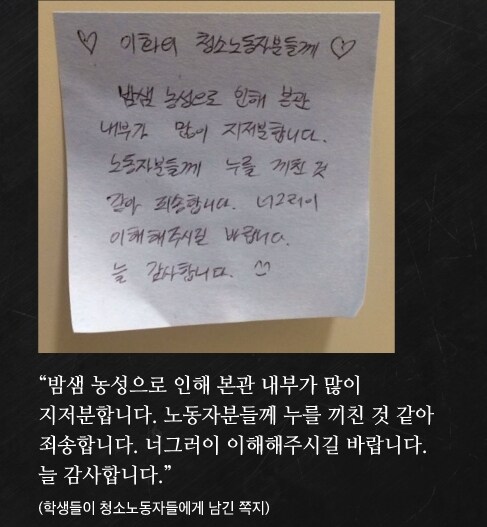 ♡ 이화의 청소노동자분들께 ♡
밤샘 농성으로 인해 본관
내부가 많이 지저분합니다.
노동자분들께 누를 끼친 것
같아 죄송합니다. 너그러이
이해해주시길 바랍니다.
늘 감사합니다.
“밤샘 농성으로 인해 본관 내부가 많이
지저분합니다. 노동자분들께 누를 끼친 것 같아
죄송합니다. 너그러이 이해해주시길 바랍니다.
늘 감사합니다.”
(학생들이 청소노동자들에게 남긴 쪽지)